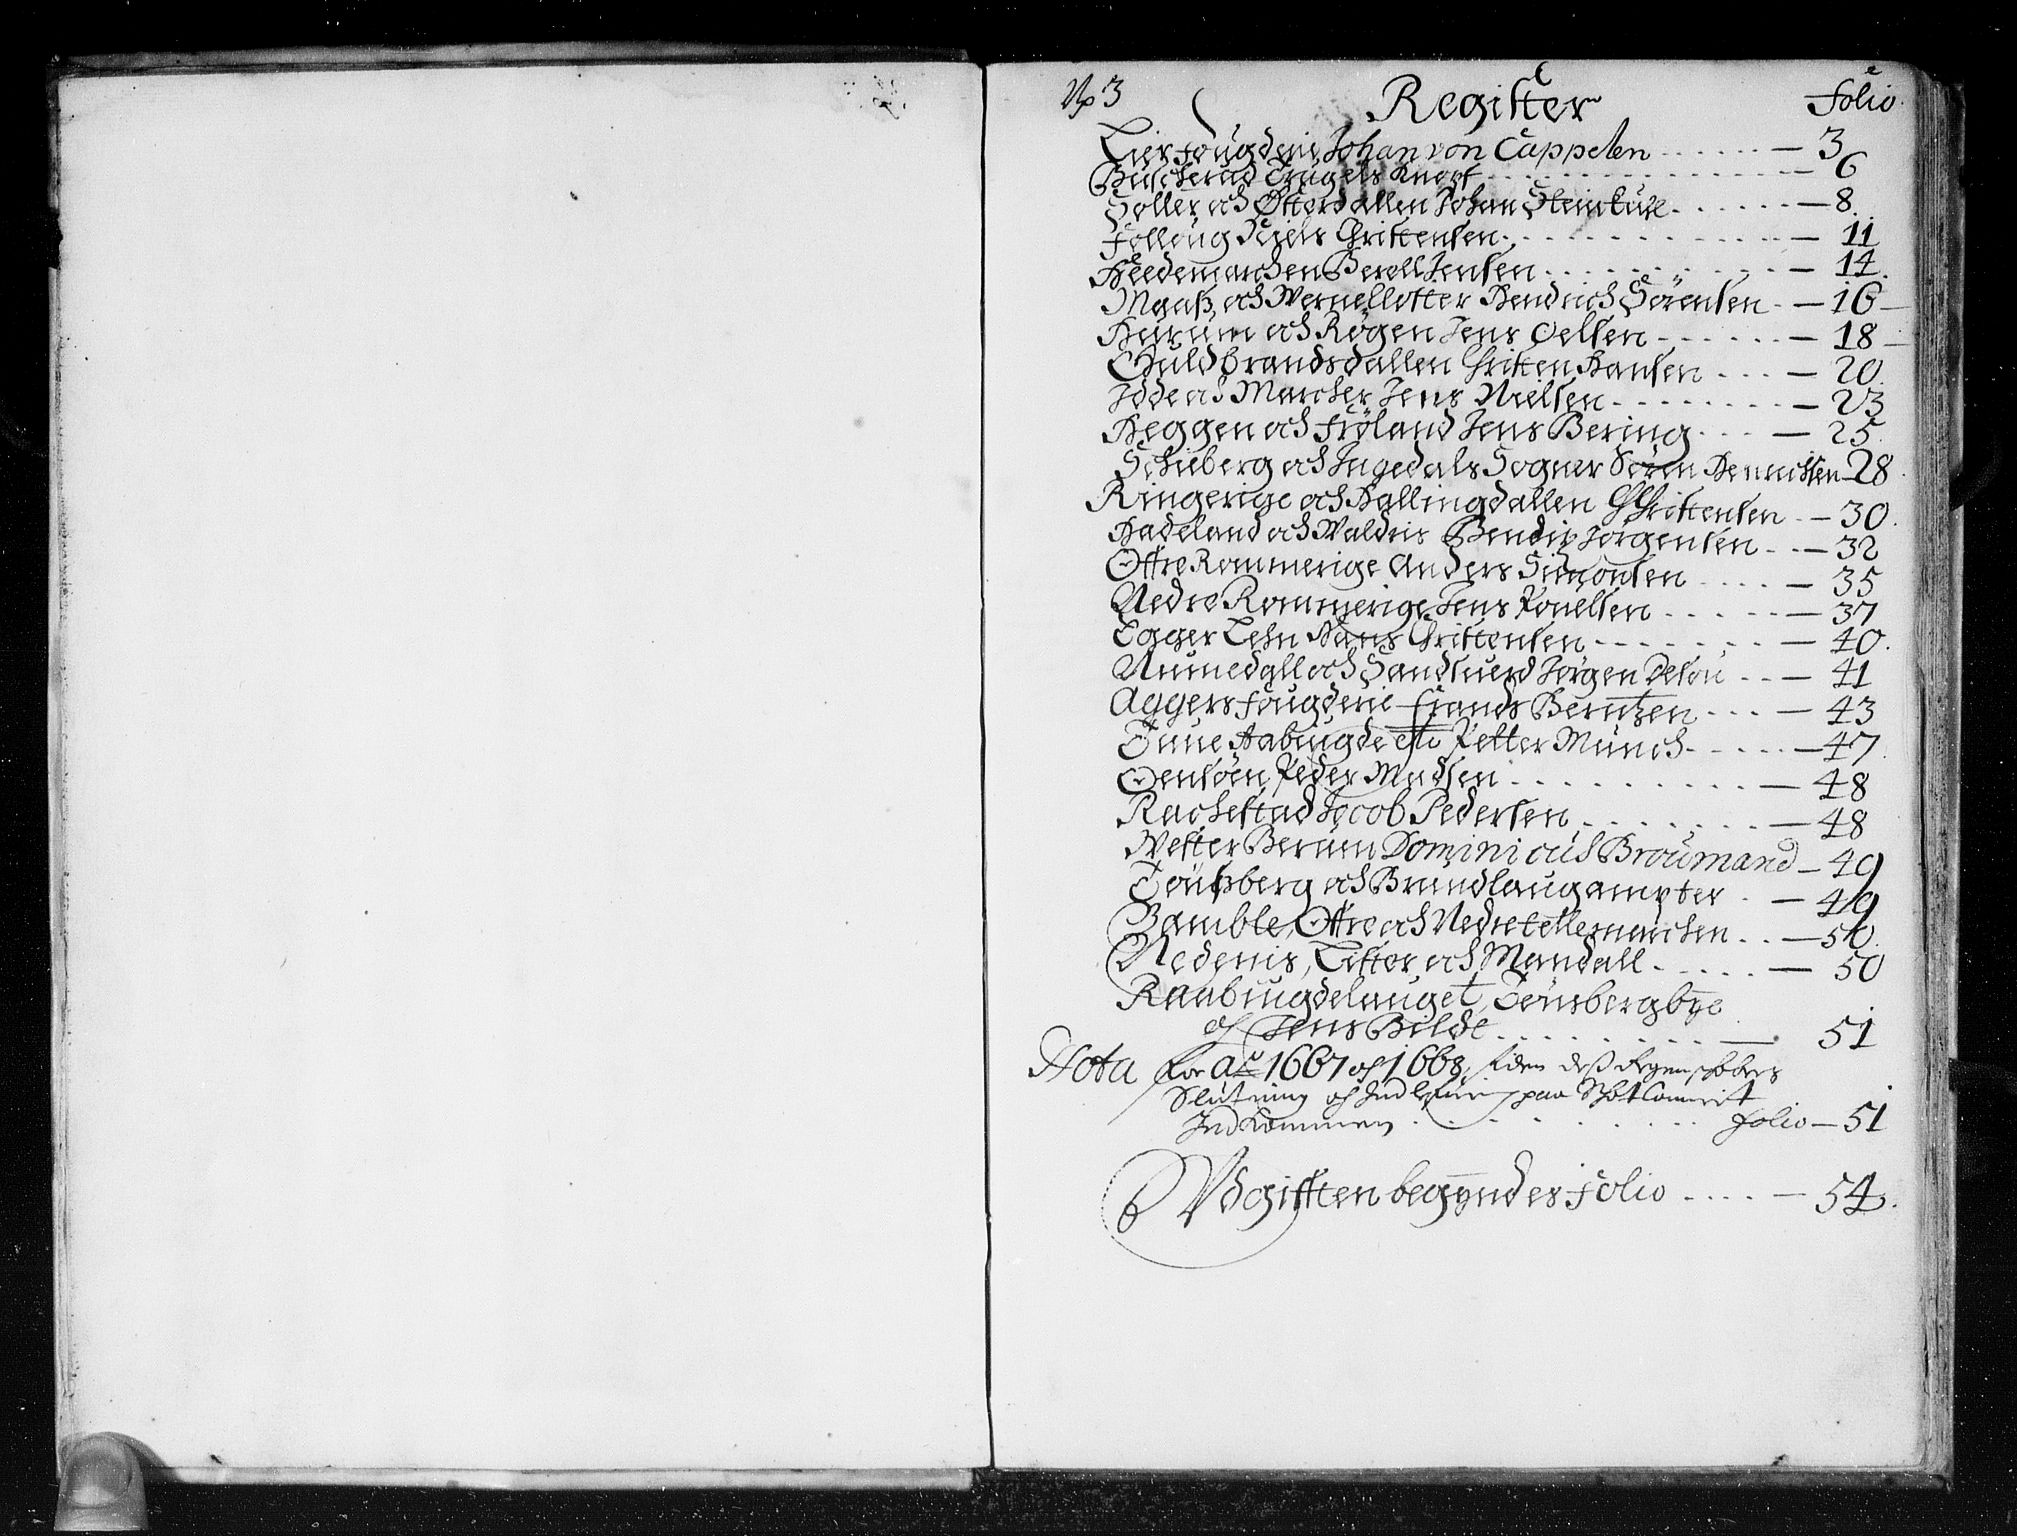 No 3 Register folio
Lier fougderie Johan von Cappelen - 3
Buscherud Trugels Knopf - 6
Soller och Østerdallen Johan Steinkull - 8
Folloug Niels Christensen - 11
Heedemarchen Berell Jensen - 14
Moss och Wernekloster Hendrich Sørensen - 16
Hurum och Røgen Jens Oelsen - 18
Guldbrandsdallen Christen Hansen - 20
Idde och Marcher Jens Nielsen - 23
Heggen och Frøland Jens Bering - 25
Schieberg och Ingedals Sogner Søren Henrichsen - 28
Ringerige och Hallingdallen Christensen - 30
Hadeland och Waldris Bendix Jørgensen - 32
Øffre Rommerige Anders Simonsen - 35
Nedre Rommerige Jens Powelsen - 37
Egger Lehn Hans Christensen - 40
Numedall och Sandsuerd Jørgen - 41
Aggers fougderie frands Berntzen - 43
Tune Aabuugde etc Petter Münch - 47
Oensøen Peder Madsen - 48
Rachestad Jacob Pedersen - 48
Wester Berum Dominicus Broumand - 49
Tønsberg och Brundlaug ampter - 49
Bamble, Øffre och Nedre tellemarchen - 50
Nedenis, Lister och Mandall - 50
Raabuugdelauget, Tønsberg bye
och Jens Bilde - 51
Nota for Ao 1667 och 1668, siden deß Regenschabers
Slutning och paa
Indkommen folio - 51
Udgifften begyndes folio - 54